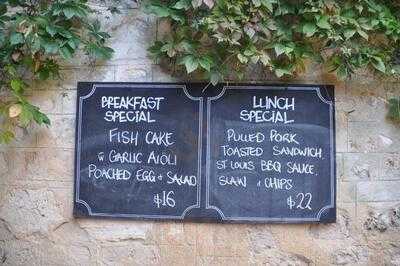 BREAKFAST
SPECIAL
FISH CAKE
W GARLIC AIOLI
POACHED EGG + SALAD
$16
LUNCH
SPECIAL
PULLED PORK
TOASTED SANDWICH
W ST LOUIS BBQ SAUCE,
SLAW + CHIPS
$22